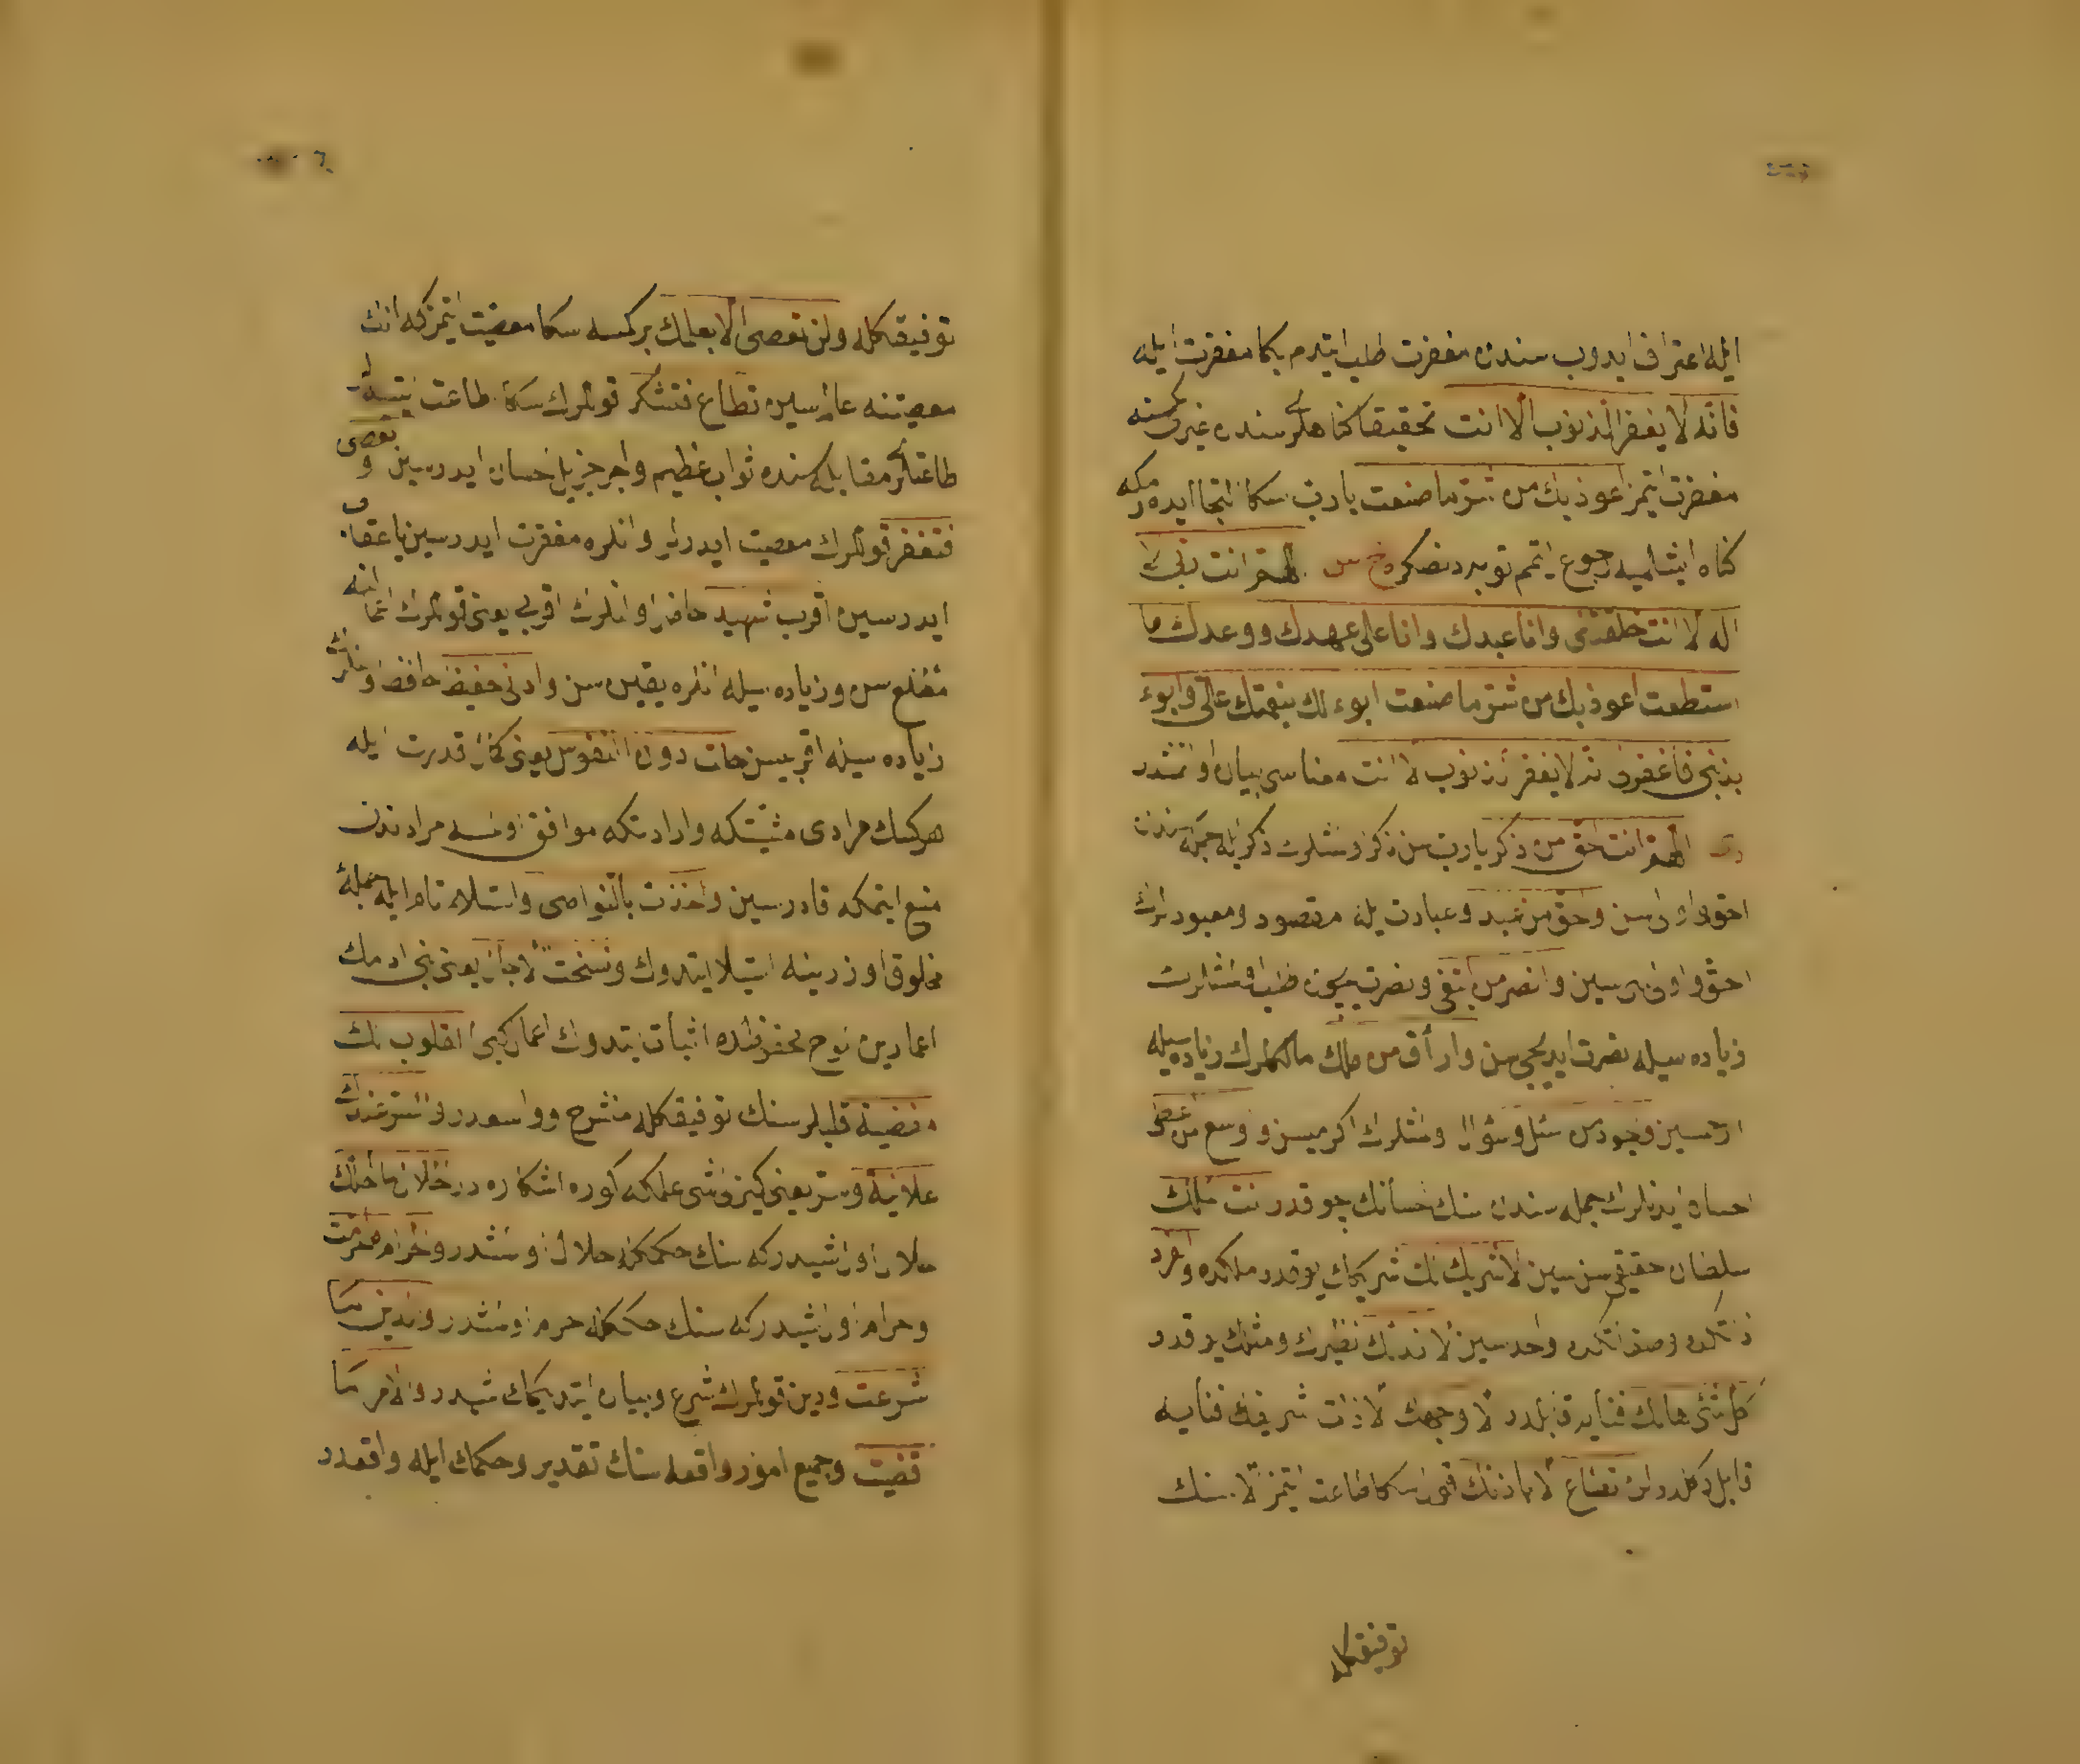 ايله اعتراف ايدوب سندن مغفرت طلب ايتدم بكا مغفرت ايله
فانه لا يغفر الذنوب الا انت تحقيقا كناهلرى سندن غيرى كمسنه
مغفرت ايتمز اعوذ بك من شر ما صنعت يارب سكا التجا ايدرمكه
كناه ايشلميه رجوع ايتمم توبه دنصكره اللهم انت ربى لا
اله الا انت خلقتنى وانا عبدك وانا على عهدك ووعدك ما
استطعت اعوذ بك من شر ما صنعت ابوء لك بنعمتك على وابوء
بذنبى فاغفرلى فانه لا يغفر الذنوب الا انت معناسى بيان اولنمشدر
اللهم انت احق من ذكر يارب سن ذكر اولنمشلرك ذكر ايله جمله سندن
احق واولى سن واحق من عبد وعبادت ايله مقصود ومعبودلرك
احق واولى سى سين وانصر من ابتغى ونصرت ايچون طلب اولنمشلرك
زياده سيله نصرت ايديجى سن وارأف من ملك مالكلرك زياده سيله
ارحمسين واجود من سئل وسؤال اولنمشلرك اكرمىسن واوسع من اعطى
احسان ايدنلرك جمله سندن سنك احسانك چوقدر انت الملك
سلطان حقيقى سن سين لا شريك لك شريكك يوقدر ملككده والفرد
ذاتكده وصفاتكده واحدسين لا ند لك نظيرك ومثلك يوقدر
كل شئ هالك فنايه قابلدر الا وجهك الا ذات شريفك فنايه
قابل دكلدر لن تطاع الا باذنك قولك سكا طاعت ايتمز الا سنك
توفيقكله
توفيقكله ولن تعصى الا بعلمك بر كمسه سكا معصيت ايتمز كه انك
معصيتنه عالمسين تطاع فتشكر قوللرك سكا طاعت ايتسه لر
طاعتلرى مقابله سنده ثواب عظيم واجر جزيل احسان ايدرسين وتعصى
فتغفر قوللرك معصيت ايدرلر وانلره مغفرت ايدرسين ياعفو
ايدرسين اقرب شهيد حاضر اولنلرك اقربى يعنى قوللرك اعمالنه
مطلع سن وزياده سيله انلره يقين سن وادنى حفيظ حافظ اولنلرك
زياده سيله اقربيسن حلت دون النفوس يعنى كمال قدرت ايله
هر كسك مرادى مشيتكه وارادتكه موافق اولمسه مرادندن
منع ايتمكه قادرسين واخذت بالنواصى واستيلاء تام ايله جمله
مخلوق اوزرينه استيلا ايتدوك ونسخت الاجال يعنى بنى ادمك
اعمارين لوح محفوظده اثبات ايتدوك اعمال كبى القلوب لك
مفضية قلبلر سنك توفيقكله منشرح وواسعدر والسر عندك
علانية وسر يعنى كيزلو شى علمكه كوره اشكاره در الحلال ما احللت
حلال اول شيدركه سنك حكمكله حلال اولمشدر والحرام ما حرمت
وحرام اول شيدركه سنك حكمكله حرام اولمشدر والدين ما
شرعت ودين قوللرك شرع وبيان ايتديكك شيدر والامر ما
قضيت وجميع امور واقعه سنك تقدير وحكمك ايله واقعدر